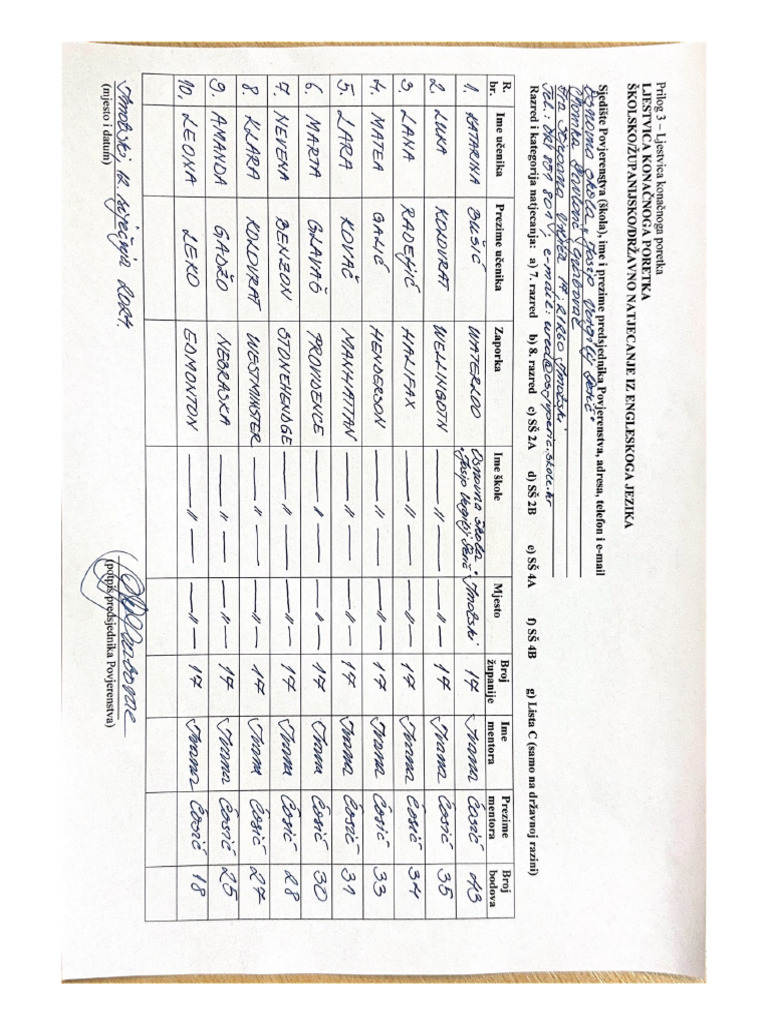 Prilog 3 – Ljestvica konačnoga poretka
LJESTVICA KONAČNOGA PORETKA
ŠKOLSKO/ŽUPANIJSKO/DRŽAVNO NATJECANJE IZ ENGLESKOGA JEZIKA
Sjedište Povjerenstva (škola), ime i prezime predsjednika Povjerenstva, adresa, telefon i e-mail
Osnovna škola "Josip Vergilij Perić"
17, 21260 Imotski
Tel.: e-mail: ured@os-jvperic.skole.hr
Razred i kategorija natjecanja: a) 7. razred b) 8. razred c) SŠ 2A d) SŠ 2B e) SŠ 4A f) SŠ 4B g) Lista C (samo na državnoj razini)
R. br. Ime učenika Prezime učenika Zaporka Ime škole Mjesto Broj županije Ime mentora Prezime mentora Broj bodova
1. KATARINA BUŠIĆ WATERLOO Osnovna škola "Josip Vergilij Perić" Imotski 17 Ivana Ćosić 43
2. LUKA KONDVRAT WELLINGOTN —〃— —〃— 17 Ivana Ćosić 35
3. LANA RADELJIĆ HALIFAX —〃— —〃— 17 Ivana Ćosić 34
4. MATEA GALIĆ HENDERSON —〃— —〃— 17 Ivana Ćosić 33
5. LARA KOVAČ MANHATTAN —〃— —〃— 17 Ivana Ćosić 31
6. MARTA GLAVAŠ PROVIDENCE —〃— —〃— 17 Ivana Ćosić 30
7. NEVENA BENZON STONEHENGE —〃— —〃— 17 Ivana Ćosić 28
8. KLARA KONDVRAT WESTMINSTER —〃— —〃— 17 Ivana Ćosić 27
9. AMANDA GADŽO NEBRASKA —〃— —〃— 17 Ivana Ćosić 25
10. LEONA LEKO EDMONTON —〃— —〃— 17 Ivana Ćosić 18
Imotski, 12. siječnja 2024.
(mjesto i datum)
(potpis predsjednika Povjerenstva)